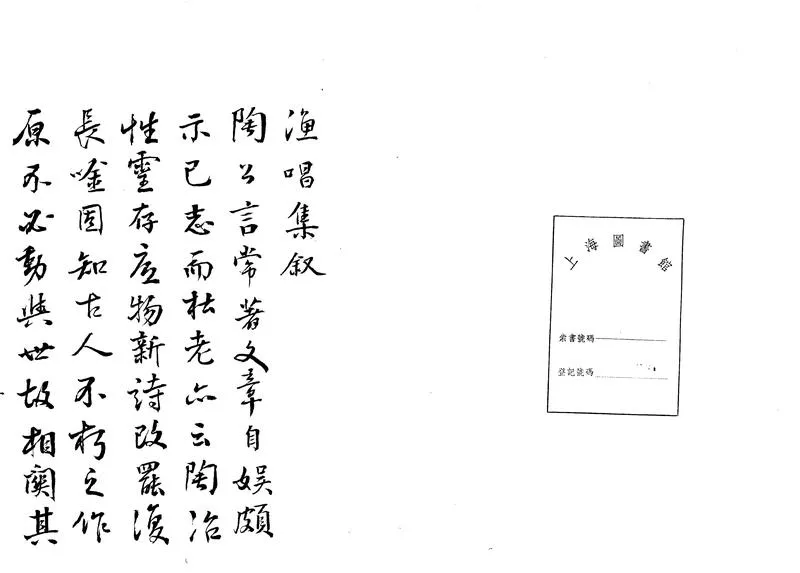 上海圖書館
索書號碼
登記號碼
漁唱集叙
陶公言常著文章自娛頗
示已志而杜老亦云陶冶
性靈存底物新詩改罷復
長唫固知古人不朽之作
原不必動與世故相關其